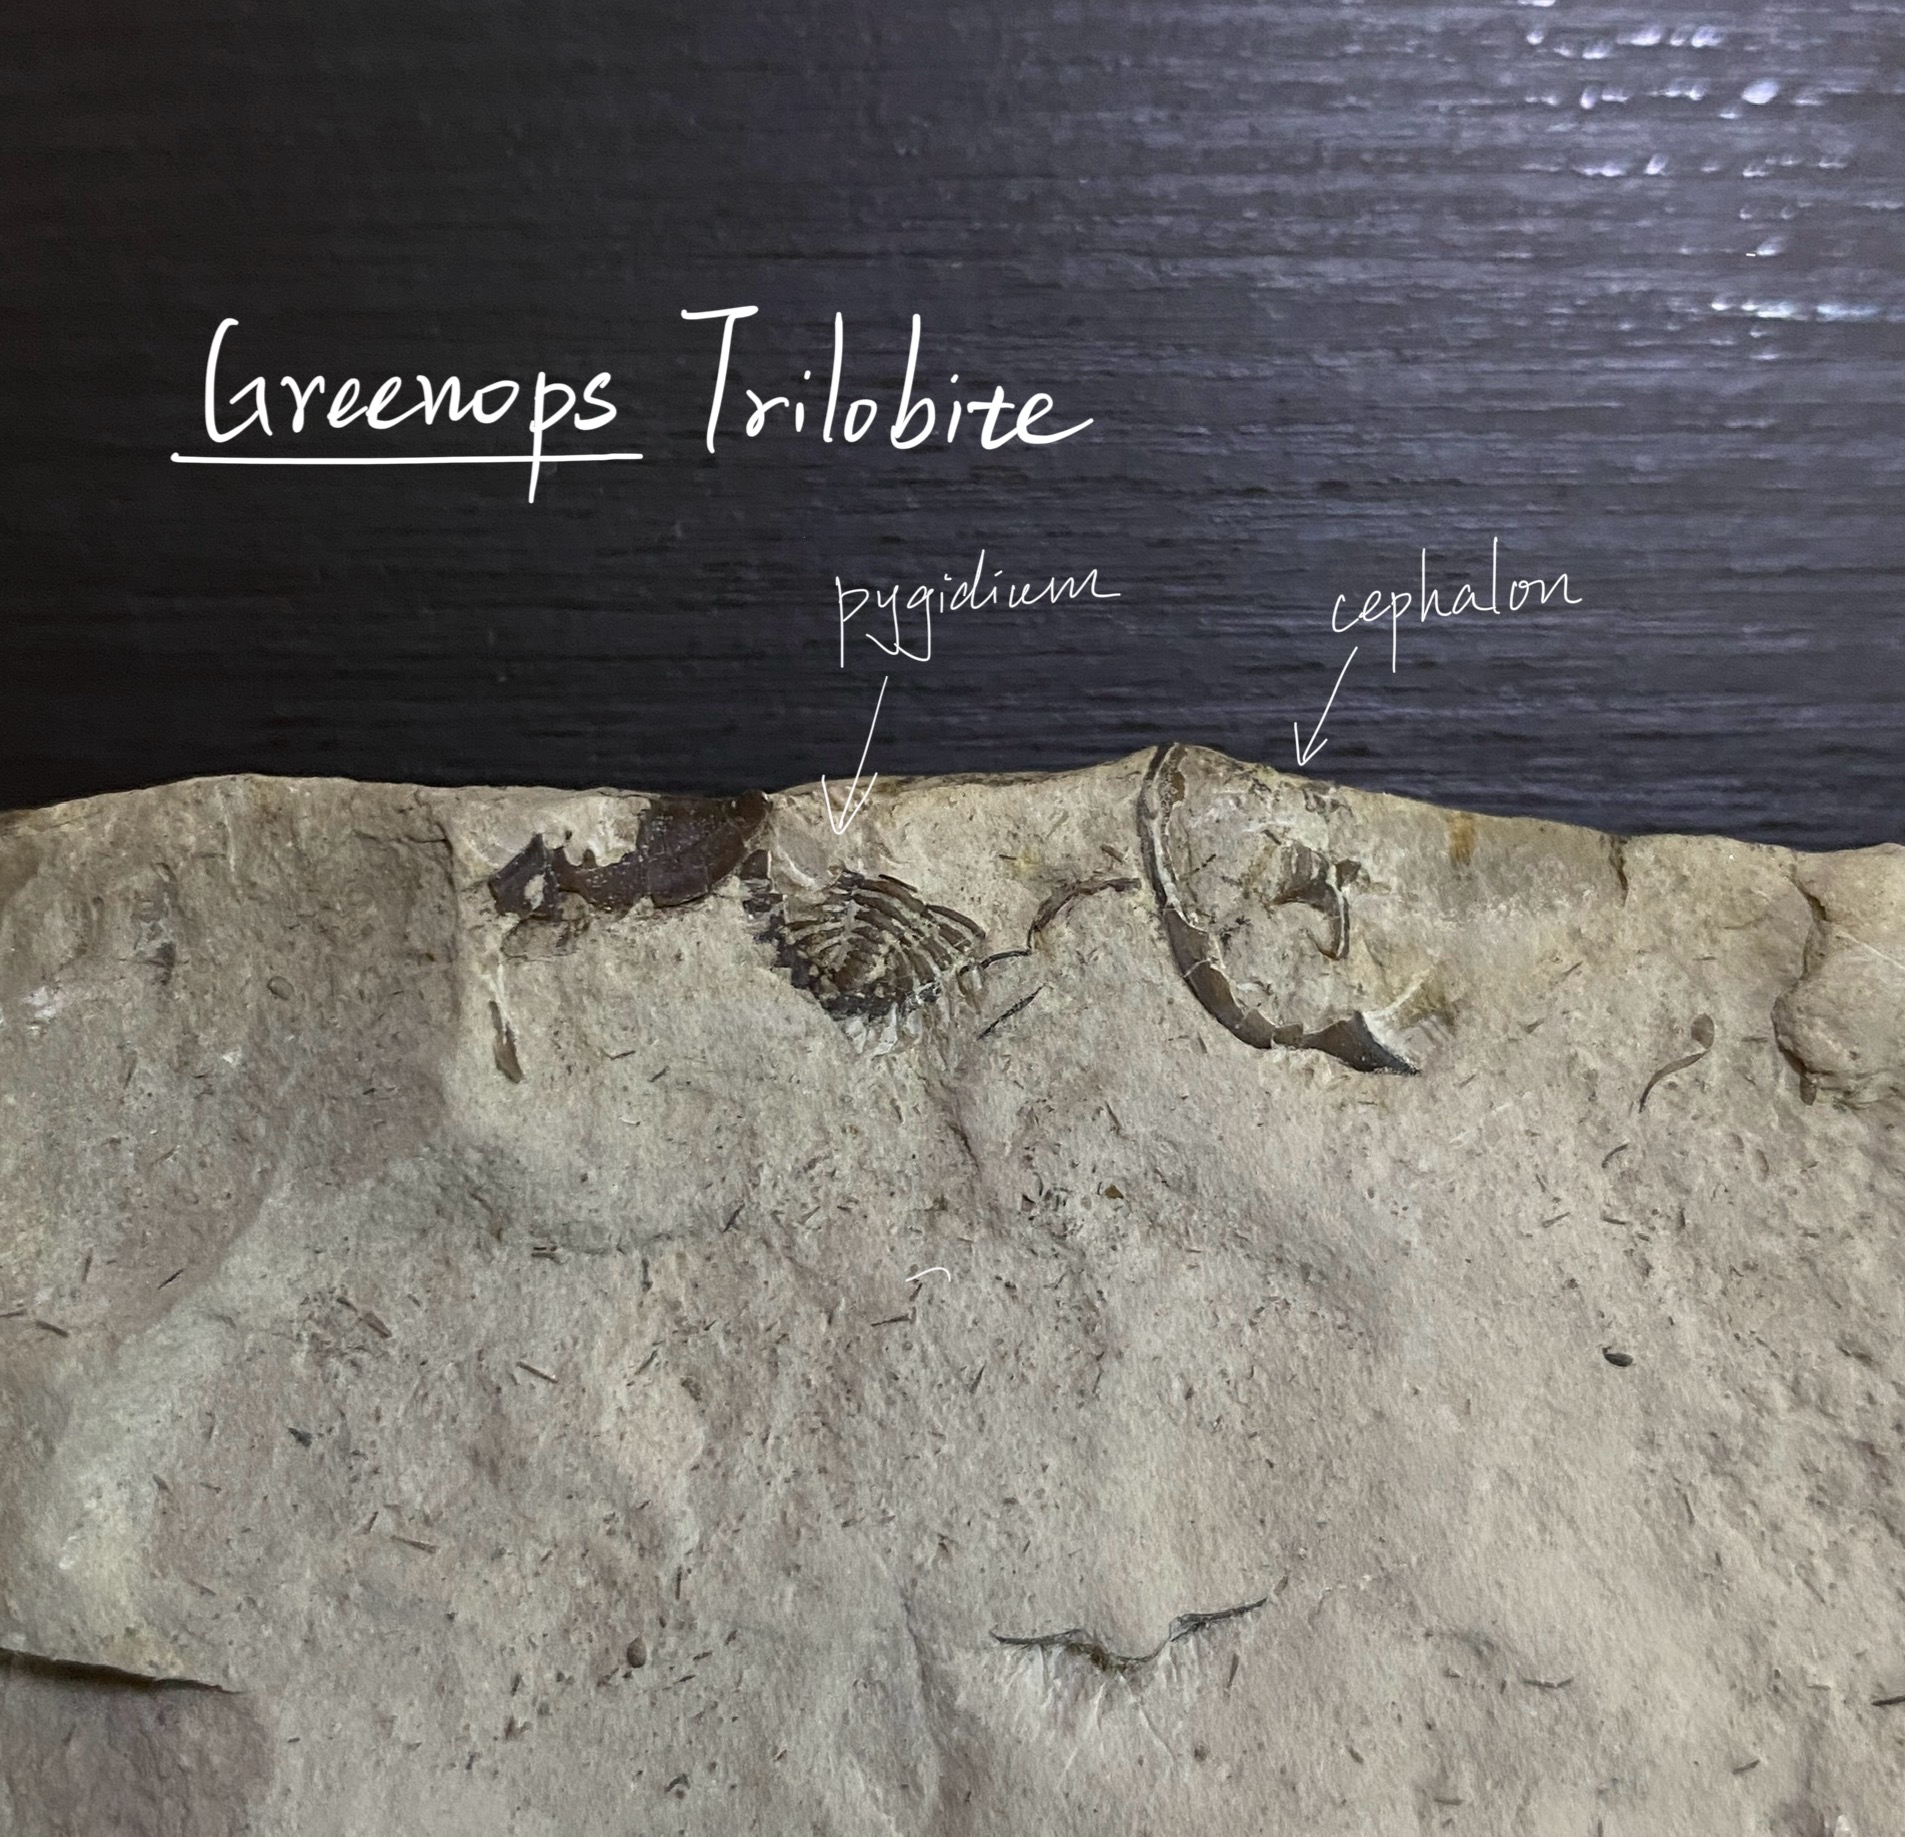 Greenops Trilobite
pygidium
cephalon